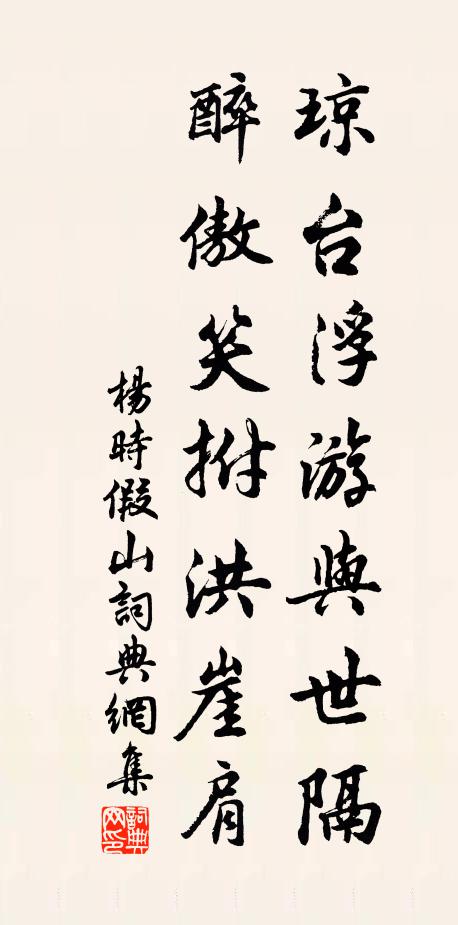 琼台浮游與世隔
醉傲笑拊洪崖肩
楊時假山詞典網集
詞典網印